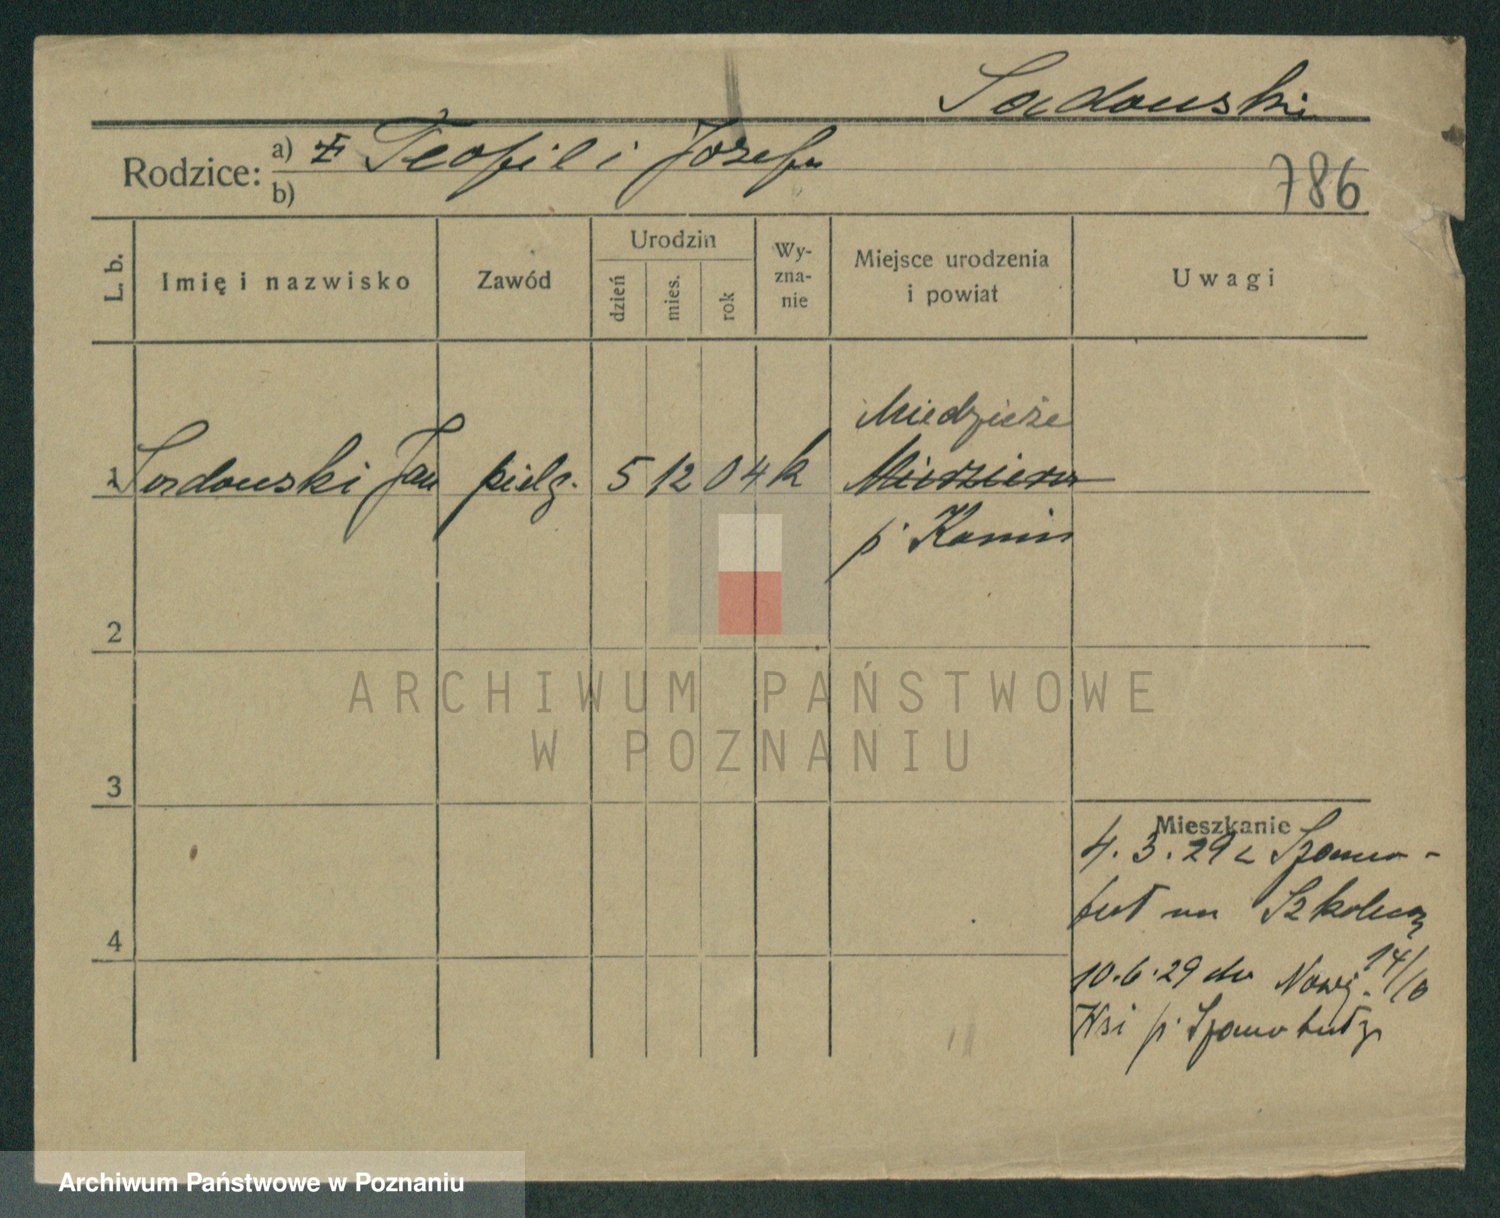 Sadowski
Rodzice: a) Teofil i Józefa
b)
786
L. b. Imię i nazwisko Zawód Urodzin dzień mies. rok Wy-zna-nie Miejsce urodzenia i powiat Uwagi
Miedzieże
1 Sadowski Jan pielg. 5 12 04 k
p.
2
ARCHIWUM PAŃSTWOWE
W POZNANIU
3
Mieszkanie
4. 3. 29 z Szamo-
tuł na Szkolną
4
14/10
10. 6. 29 do Nowej
Wsi p. Szamotuły
Archiwum Państwowe w Poznaniu